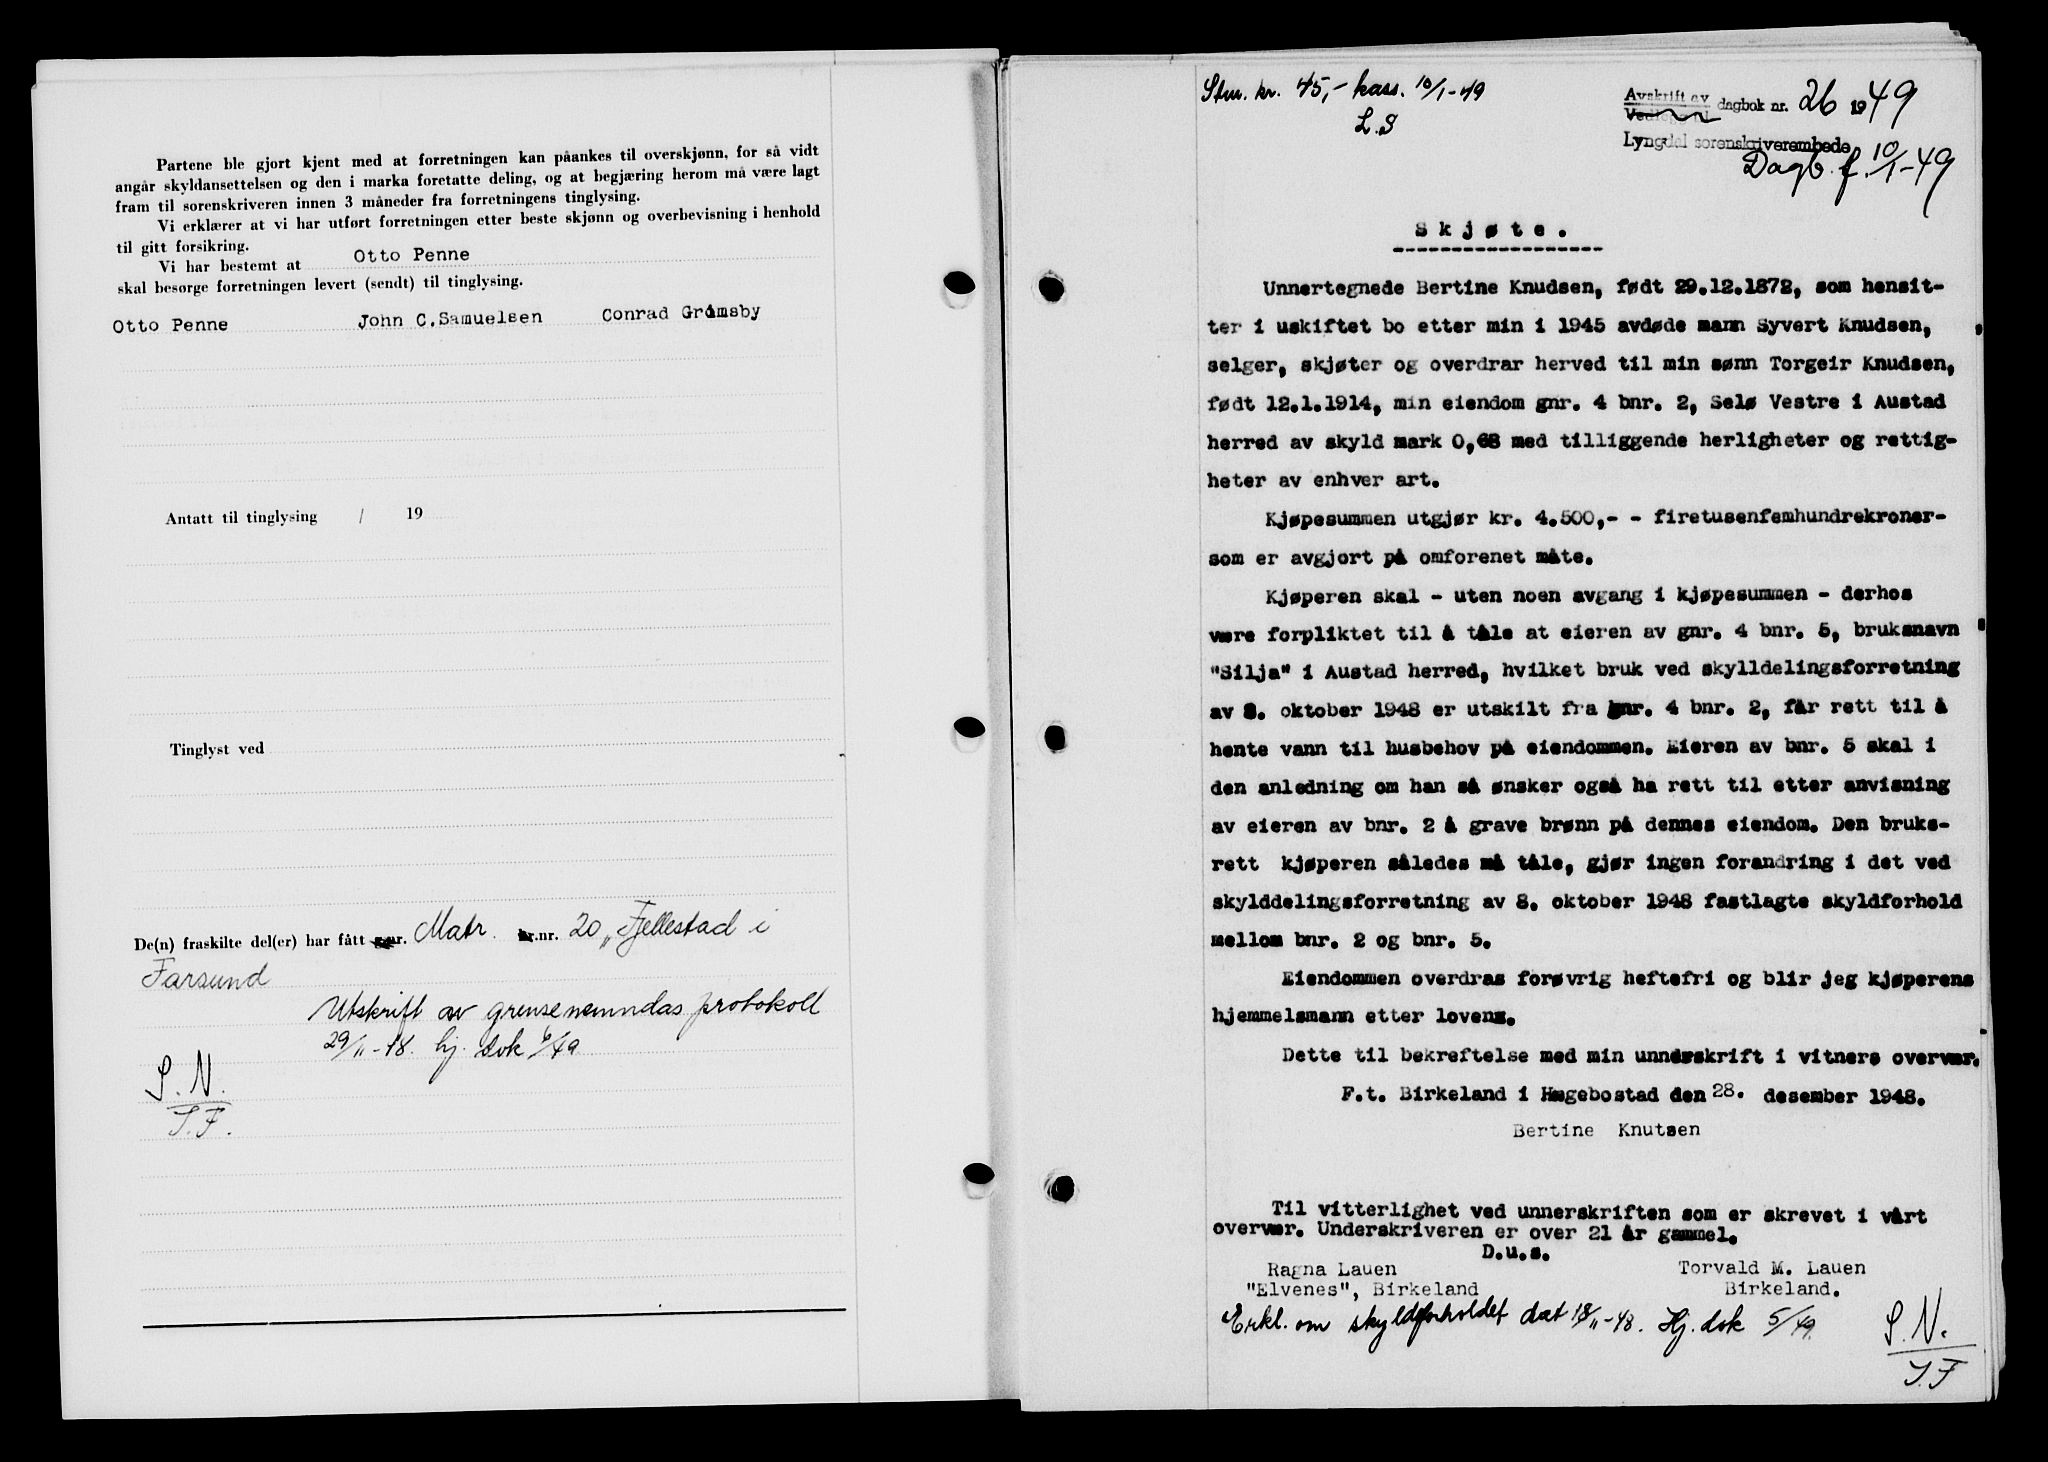 Partene ble gjort kjent med at forretningen kan påankes til overskjønn, for så vidt
angår skyldansettelsen og den i marka foretatte deling, og at begjæring herom må være lagt
fram til sorenskriveren innen 3 måneder fra forretningens tinglysing.
Vi erklærer at vi har utført forretningen etter beste skjønn og overbevisning i henhold
til gitt forsikring.
Vi har bestemt at Otto Penne
skal besørge forretningen levert (sendt) til tinglysing.
Otto Penne John C. Samuelsen Conrad Grimsby
Antatt til tinglysing / 19
Tinglyst ved
De(n) fraskilte del(er) har fått gnr. Matr. br.nr. 20 „Fjellestad i
Farsund
Utskrift av grensenemndas protokoll
29/11-48. hj. dok 6/49
S. N.
T. F.
Stm. kr. 45,- kass. 10/1-49
L.S
Avskrift av
dagbok nr. 26 1949
Lyngdal sorenskriverembede
Dagb. f. 10/1-49
Skjøte.
Unnertegnede Bertine Knudsen, født 29.12.1872, som hensit-
ter i uskiftet bo etter min i 1945 avdøde mann Syvert Knudsen,
selger, skjøter og overdrar herved til min sønn Torgeir Knudsen,
født 12.1.1914, min eiendom gnr. 4 bnr. 2, Selø Vestre i Austad
herred av skyld mark 0,68 med tilliggende herligheter og rettig-
heter av enhver art.
Kjøpesummen utgjør kr. 4.500,- - firetusenfemhundrekroner-
som er avgjort på omforenet måte.
Kjøperen skal - uten noen avgang i kjøpesummen - derhos
være forpliktet til å tåle at eieren av gnr. 4 bnr. 5, bruksnavn
"Silja" i Austad herred, hvilket bruk ved skylldelingsforretning
av 8. oktober 1948 er utskilt fra gnr. 4 bnr. 2, får rett til å
hente vann til husbehov på eiendommen. Eieren av bnr. 5 skal i
den anledning om han så ønsker også ha rett til etter anvisning
av eieren av bnr. 2 å grave brønn på dennes eiendom. Den bruks-
rett kjøperen således må tåle, gjør ingen forandring i det ved
skylddelingsforretning av 8. oktober 1948 fastlagte skyldforhold
mellom bnr. 2 og bnr. 5.
Eiendommen overdras forøvrig heftefri og blir jeg kjøperens
hjemmelsmann etter lovens.
Dette til bekreftelse med min unnerskrift i vitners overvær.
F.t. Birkeland i Hægebostad den 28. desember 1948.
Bertine Knutsen
Til vitterlighet ved unnerskriften som er skrevet i vårt
overvær. Underskriveren er over 21 år gammel.
D.u.s.
Ragna Lauen Torvald M. Lauen
"Elvenes", Birkeland Birkeland.
Erkl. om skyldforholdet dat 18/11-48. Hj. dok 5/49.
S. N.
T. F